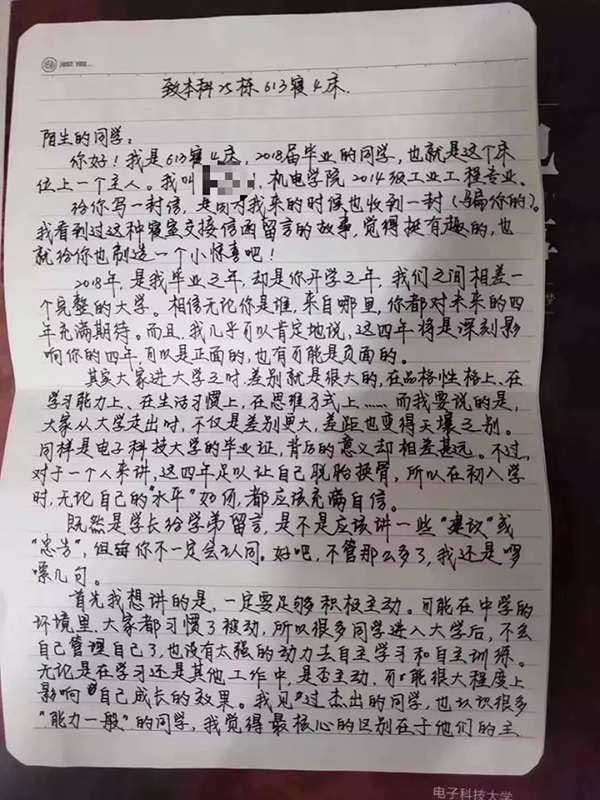 JUST YOU...
致本科25栋613寝4床.
陌生的同学:
你好!我是613寝4床,2018届毕业的同学,也就是这个床
位上一个主人。我叫,机电学院2014级工业工程专业、
给你写一封信,是因为我来的时候也收到一封(骗你的)。
我看到过这种寝室交接信函留言的故事,觉得挺有趣的,也
就给你也制造一个小惊喜吧!
2018年,是我毕业之年,却是你开学之年,我们之间相差一
个完整的大学。相信无论你是谁,来自哪里,你都对未来的四
年充满期待。而且,我几乎可以肯定地说,这四年将是深刻影
响你的四年,可以是正面的,也有可能是负面的。
其实大家进大学之时,差别就是很大的,在品格性格上、在
学习能力上、在生活习惯上,在思维方式上……而我要说的是,
大家从大学走出时,不仅是差别更大,差距也变得天壤之别。
同样是电子科技大学的毕业证,背后的意义却相差甚远。不过,
对于一个人来讲,这四年足以让自己脱胎换骨,所以在初入学
时,无论自己的“水平”如何,都应该充满自信。
既然是学长给学弟留言,是不是应该讲一些“建议”或
“忠告”,但每你不一定会认同。好吧,不管那么多了,我还是啰
嗦几句。
首先我想讲的是,一定要足够积极主动。可能在中学的
环境里,大家都习惯了被动,所以很多同学进入大学后,不会
自己管理自己了,也没有太强的动力去自主学习和自主训练。
无论是在学习还是其他工作中,是否主动,可能很大程度上
影响自己成长的效果。我见过杰出的同学,也认识很多
“能力一般”的同学,我觉得最核心的区别在于他们的主
电子科技大学